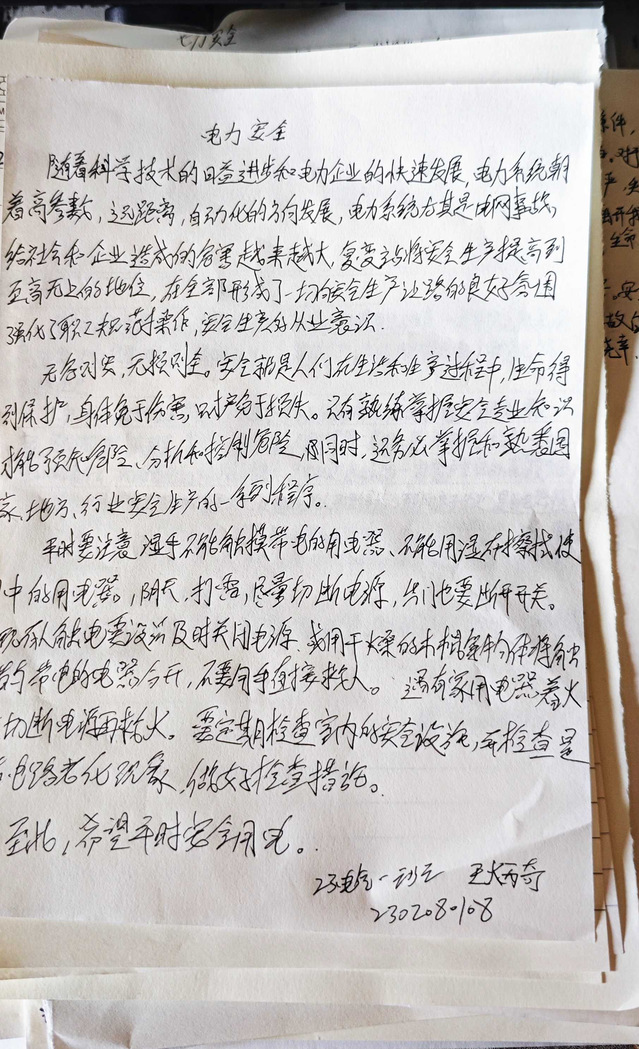 电力安全
电力安全
随着科学技术的日益进步和电力企业的快速发展，电力系统朝
着高参数，远距离，自动化的方向发展，电力系统尤其是电网事故，
给社会和企业造成的危害越来越大，安全生产提高到
至高无上的地位，在全部形成了一切安全生产让路的良好氛围
强化了职工规范操作，安全生产的从业意识.
无危则安，无损则全。安全就是人们在生活和生产过程中，生命得
到保护，身体免于伤害，财产免于损失。只有熟练掌握安全专业知识
才能预知危险、分析和控制危险，同时，还务必掌握和熟悉国
家、地方、行业安全生产的一系列程序。
平时要注意湿手不能触摸带电的用电器、不能用湿布擦拭使
中的用电器。，阴天，打雷，尽量切断电源，出门也要断开开关。
现有人触电要设法及时关闭电源、或用干燥的木棍等物体将触
者与带电的电器分开，不要用手直接救人。遇有家用电器着火
切断电源再救火。要定期检查室内的安全设施，并检查是
电路老化现象，做好检查措施。
至此，希望平时安全用电。
23电气一班
230208108
条件
生命